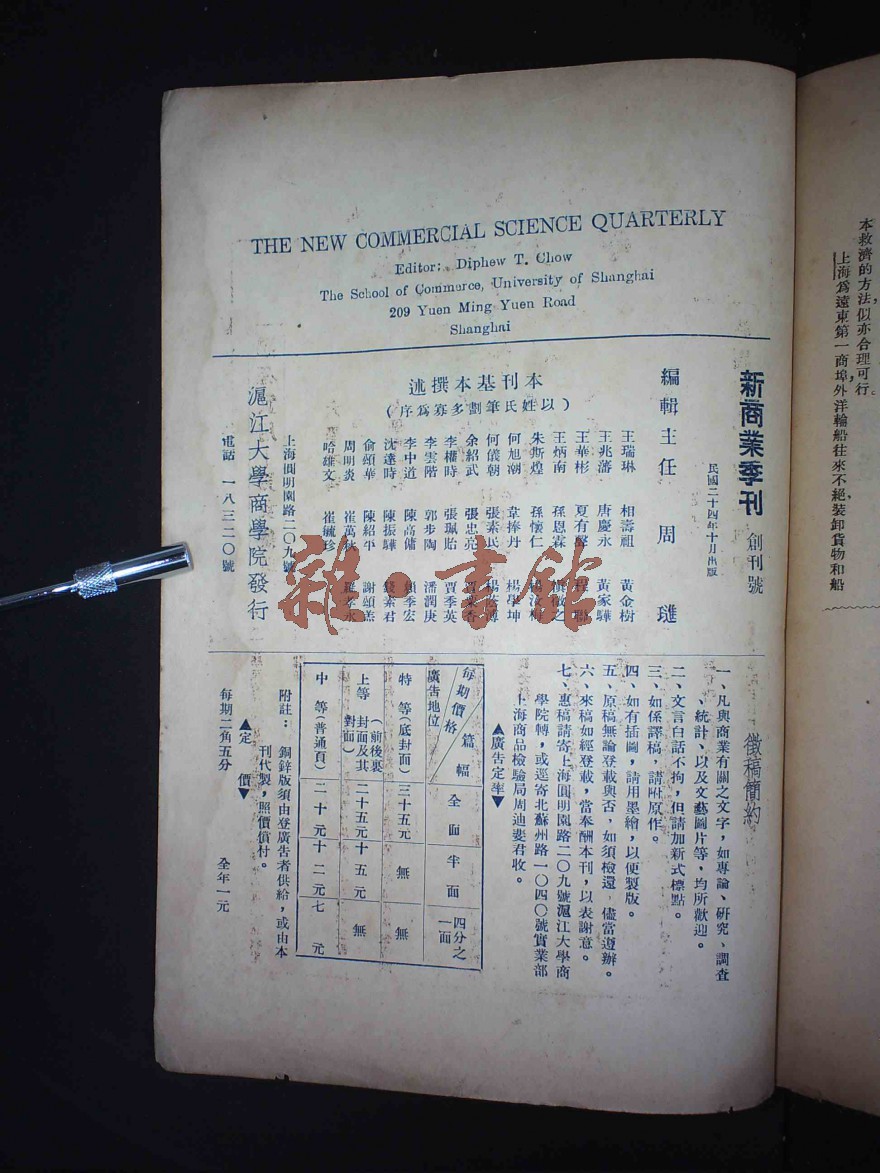 THE NEW COMMERCIAL SCIENCE QUARTERLY
Editor: Diphew T. Chow
The School of Commerce, University of Shanghai
209 Yuen Ming Yuen Road
Shanghai
新商業季刊 創刊號
民國二十四年十月出版
編輯主任 周
本刊基本撰述
(以姓氏筆劃多寡爲序)
王瑞琳 相壽祖 黃金樹
王兆藩 唐慶永 黃家驊
王華彬 夏有
王炳南 孫恩霖
朱斯煌 孫懷仁
何旭潮 韋捧丹 楊學坤
何儀朝 張素民
余紹武 張忠亮
李權時 張珮貽 賈季英
李雲階 郭步陶 潘潤庚
李中道 陳高傭 賴季宏
沈達時 陳振驊 素君
俞頌華 陳紹平 謝頌羔
周明炎 崔萬秋 羅孝水
哈雄文 崔毓珍
上海圓明園路二〇九號
滬江大學商學院發行
電話 一八三二〇號
徵稿簡約
一、凡與商業有關之文字，如專論、研究、調查
、統計、以及文藝圖片等，均所歡迎。
二、文言白話不拘，但請加新式標點。
三、如係譯稿，請咐原作。
四、如有插圖，請用墨繪，以便製版。
五、原稿無論登載與否，如須檢還，儘當遵辦。
六、來稿如經登載，當奉酬本刊，以表謝意。
七、惠稿請寄上海圓明園路二〇九號滬江大學商
學院轉，或逕寄北蘇州路一〇四〇號實業部
上海商品檢驗局周迪斐君收。
▲廣告定率▼
每期價格 篇幅 廣告地位 全面 半面 四分之一面
特等(底封面) 三十五元 無 無
上等(前後裏封面及其對面) 二十五元 十五元 無
中等(普通頁) 二十元 十二元 七元
附註： 銅鋅版須由登廣告者供給，或由本
刊代製，照價償付。
▲定價▼
每期二角五分 全年一元
本救濟的方法，似亦合理可行。
上海爲遠東第一商埠，外洋輪船往來不絕，裝卸貨物和船
雜·書館